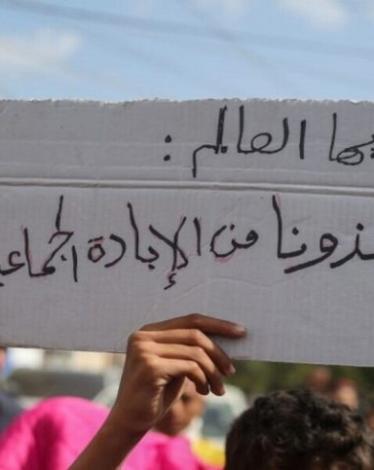 يها العالم :
ـذونا من الإبادة الجماعيـ